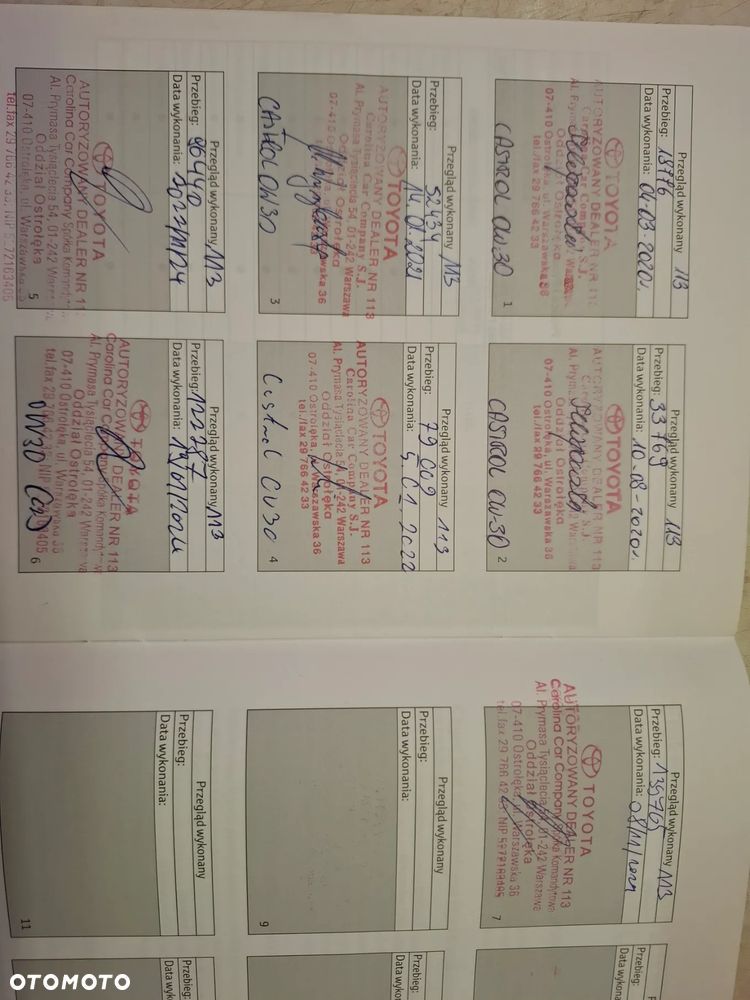 Przegląd wykonany 113
Przebieg: 18776
Data wykonania: 04-03-2020r.
TOYOTA
AUTORYZOWANY DEALER NR 113
Carolina Car Company S.J.
Oddział Ostrołęka
07-410 Ostrołęka, ul. Warszawska 36
tel./fax 29 766 42 33
CASTROL 0W-30
1
Przegląd wykonany 113
Przebieg: 33769
Data wykonania: 10-08-2020r.
TOYOTA
AUTORYZOWANY DEALER NR 113
Oddział Ostrołęka
07-410 Ostrołęka, ul. Warszawska 36
tel./fax 29 766 42 33
CASTROL 0W-30
2
Przegląd wykonany 113
Przebieg: 52434
Data wykonania:
TOYOTA
AUTORYZOWANY DEALER NR 113
Carolina Car Company S.J.
Al. Prymasa Tysiąclecia 54, 01-242 Warszawa
Oddział Ostrołęka
07-410 Ostrołęka, ul. Warszawska 36
CASTROL 0W30
3
Przegląd wykonany 113
Przebieg: 79 009
Data wykonania: 5.01.2022
TOYOTA
AUTORYZOWANY DEALER NR 113
Carolina Car Company S.J.
Al. Prymasa Tysiąclecia 54, 01-242 Warszawa
Oddział Ostrołęka
07-410 Ostrołęka, ul. Warszawska 36
tel./fax 29 766 42 33
Castrol 0W30
4
Przegląd wykonany 113
Przebieg: 96440
Data wykonania: 2022/11/24
TOYOTA
AUTORYZOWANY DEALER NR 113
Carolina Car Company Spółka Komandytowa
Al. Prymasa Tysiąclecia 54, 01-242 Warszawa
Oddział Ostrołęka
07-410 Ostrołęka, ul. Warszawska 36
tel.fax 29 766 42 33, NIP
5
Przegląd wykonany 113
Przebieg: 122787
Data wykonania:
TOYOTA
AUTORYZOWANY DEALER NR 113
Carolina Car Company Spółka Komandytowa
Al. Prymasa Tysiąclecia 54, 01-242 Warszawa
Oddział Ostrołęka
07-410 Ostrołęka, ul. Warszawska 36
tel.fax 29 766 42 33, NIP
0W30
6
Przegląd wykonany 113
Przebieg: 139769
Data wykonania:
TOYOTA
AUTORYZOWANY DEALER NR 113
Carolina Car Company Spółka Komandytowa
Al. Prymasa Tysiąclecia 54, 01-242 Warszawa
Oddział Ostrołęka
07-410 Ostrołęka, ul. Warszawska 36
tel.fax 29 766 42 33, NIP
7
Przegląd wykonany
Przebieg:
Data wykonania:
9
Przegląd wykonany
Przebieg:
Data wykonania:
11
Przebieg:
Data wykon
Przebieg:
Data wykon
Przebieg:
Data wykon
OTOMOTO